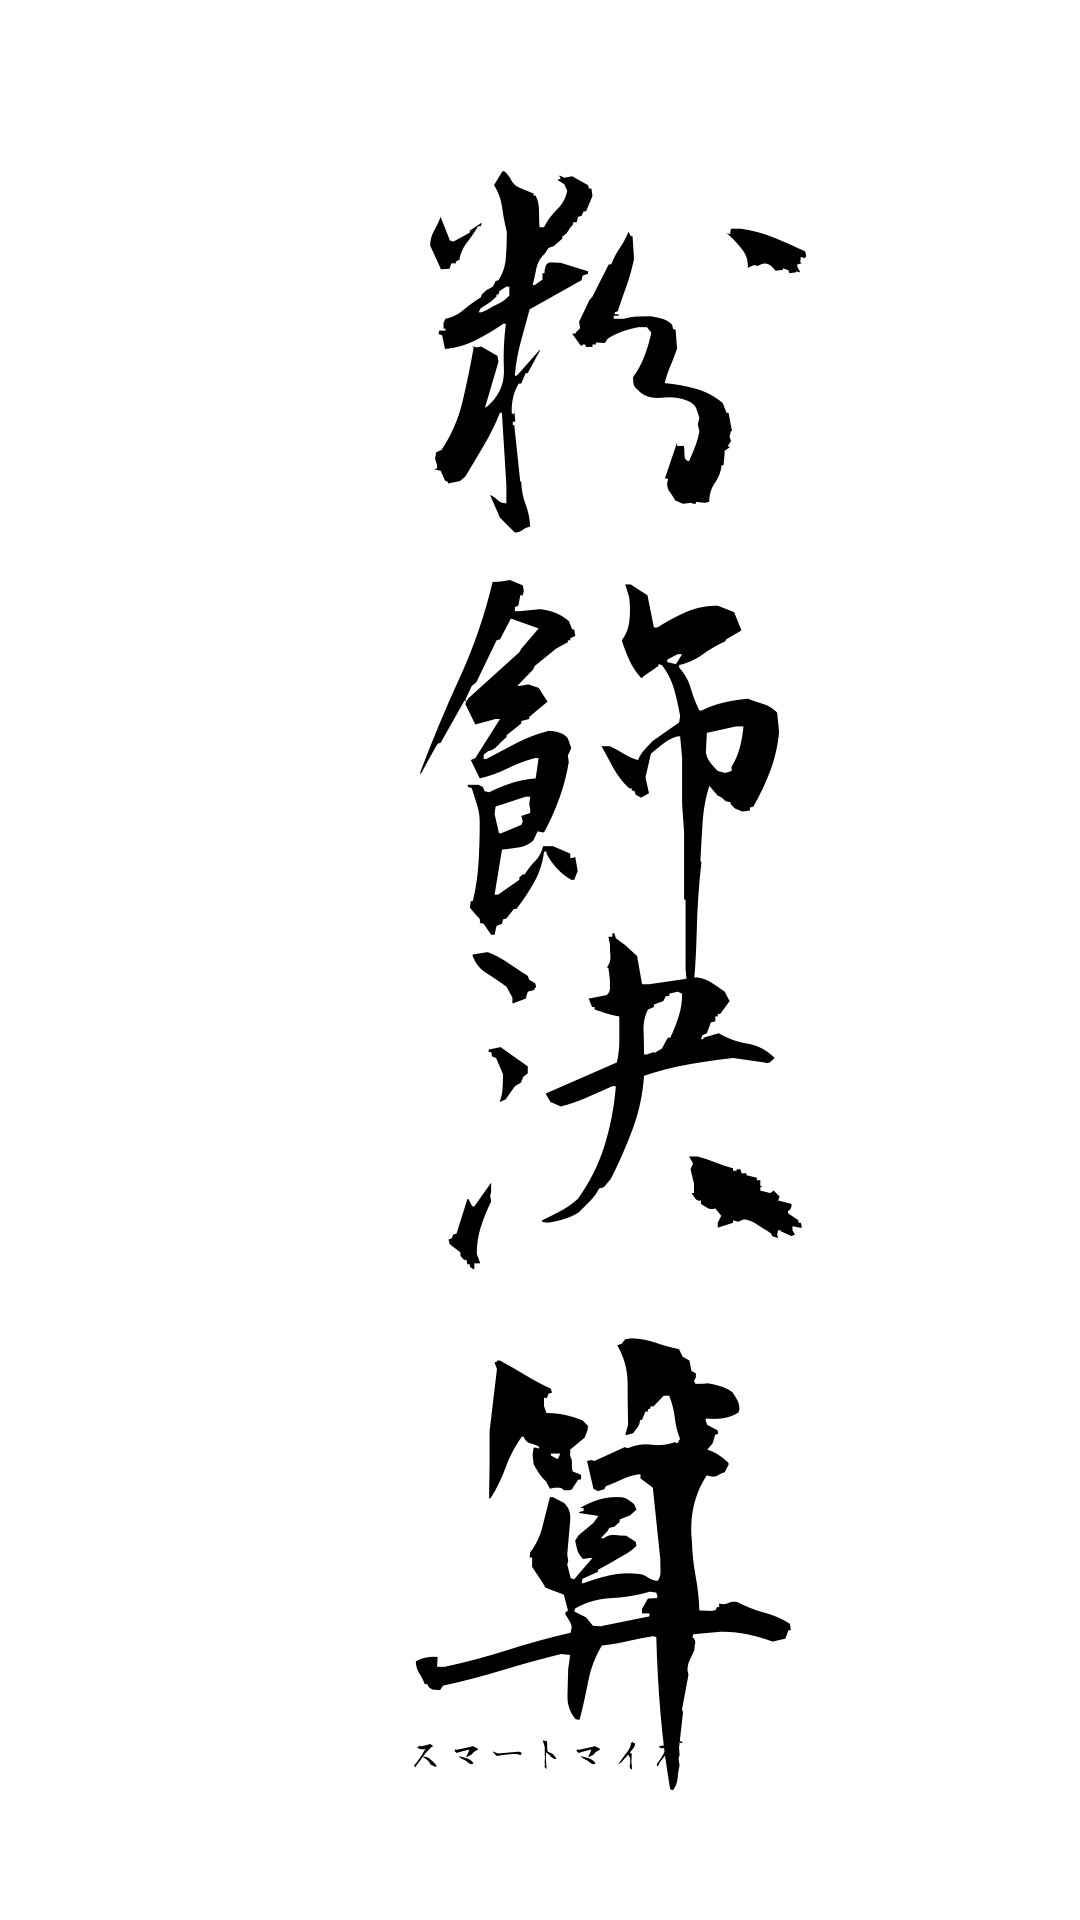 粉飾決算
スマートマイズ